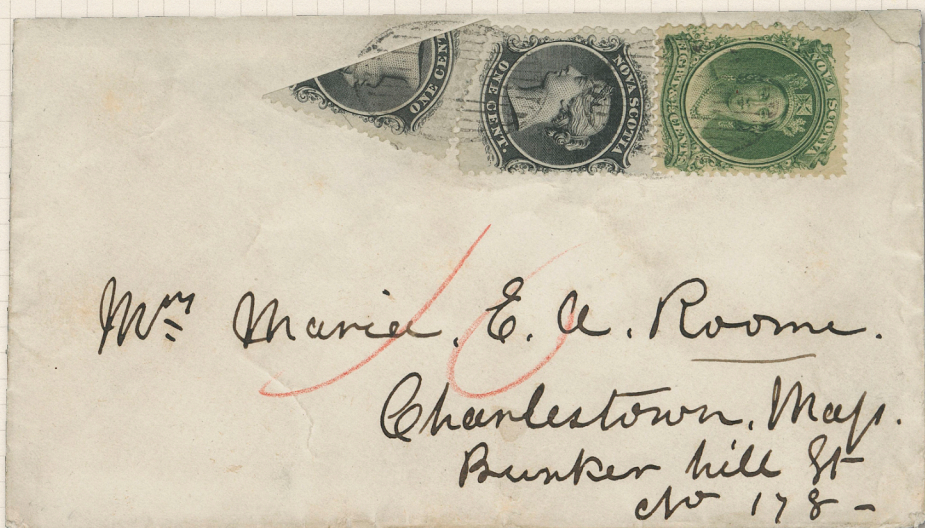 ONE CEN
ONE CENT.
NOVA SCOTIA
NOVA SCOTIA
10
Mrs Maria. E. A. Roome.
Charlestown, Mass.
Bunker hill St
No 178 -